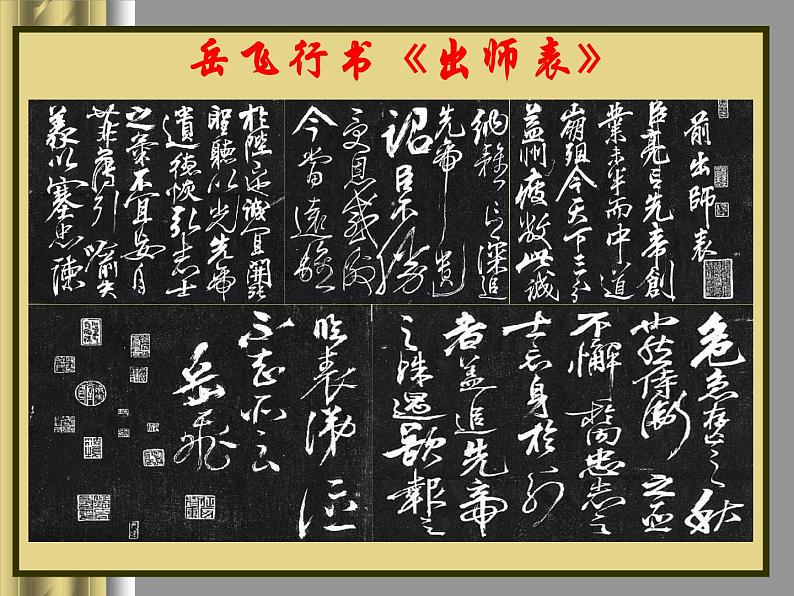 岳飞行书《出师表》
前出師表
臣亮言先帝創
業未半而中道
崩殂今天下三分
益州疲敝此誠
危急存亡之秋
也然侍衛之臣
不懈於內忠志之
士忘身於外
者蓋追先帝
之殊遇欲報之
於陛下誠宜開張
聖聽以光先帝
遺德恢弘志士
之氣不宜妄自
菲薄引喻失
義以塞忠諫
納雅言深追
先帝遺
詔臣不勝
受恩感激
今當遠離
臨表涕泣
不知所云
岳飛